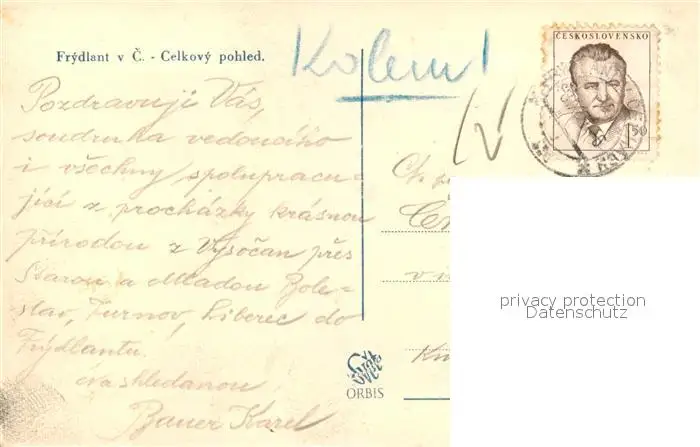 Frýdlant v Č. - Celkový pohled.
Kolem!
ČESKOSLOVENSKO
1.50
Pozdravuji Vás,
soudruha vedoucího
i všechny spolupracu-
jící z procházky krásnou
přírodou z Vysočan přes
Starou a Mladou Bole-
slav, Turnov, Liberec do
Frýdlantu.
na shledanou
Bauer Karel
SVĚT
ORBIS
privacy protection
Datenschutz